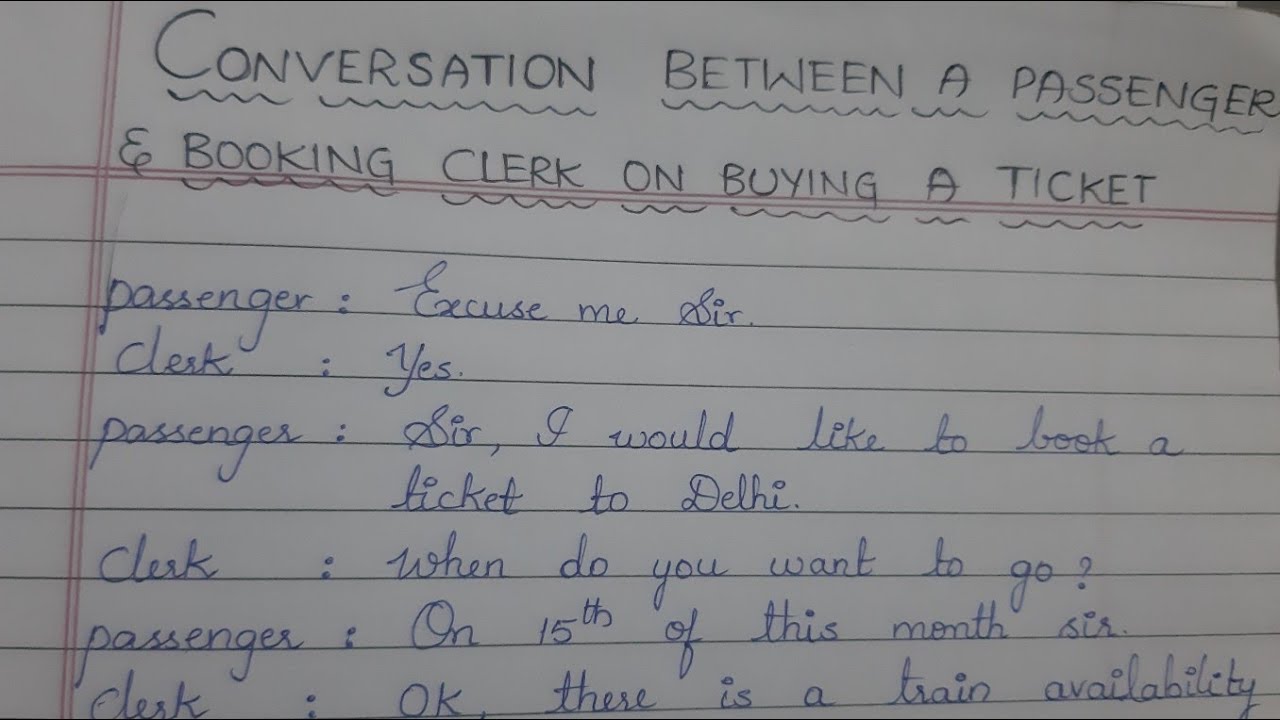 CONVERSATION BETWEEN A PASSENGER
& BOOKING CLERK ON BUYING A TICKET
passenger : Excuse me Sir.
Clerk : Yes.
passenger : Sir, I would like to book a
ticket to Delhi.
Clerk : When do you want to go?
passenger : On 15th of this month sir.
clerk : OK, there is a train availability